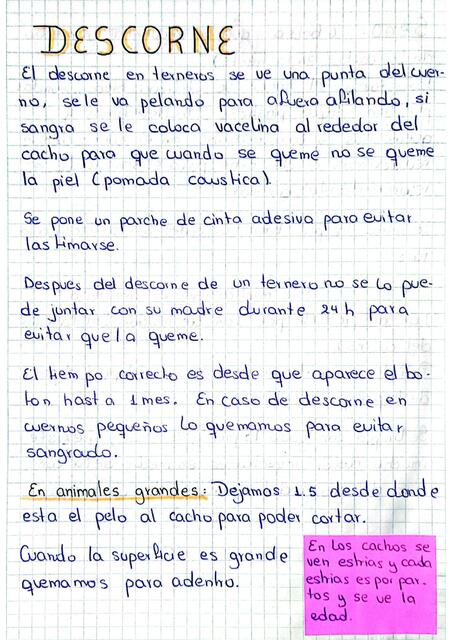 DESCORNE
El descorne en terneros se ve una punta del cuer-
no, se le va pelando para afuera afilando, si
sangra se le coloca vacelina al rededor del
cacho para que cuando se queme no se queme
la piel (pomada caustica).
Se pone un parche de cinta adesiva para evitar
lastimarse.
Despues del descorne de un ternero no se lo pue-
de juntar con su madre durante 24h para
evitar que la queme.
El tiempo correcto es desde que aparece el bo-
ton hasta 1 mes. En caso de descorne en
cuernos pequeños lo quemamos para evitar
sangrado.
En animales grandes: Dejamos 1.5 desde donde
esta el pelo al cacho para poder cortar.
Cuando la superficie es grande
quemamos para adentro.
En los cachos se
ven estrias y cada
estrias es por par-
tos y se ve la
edad.